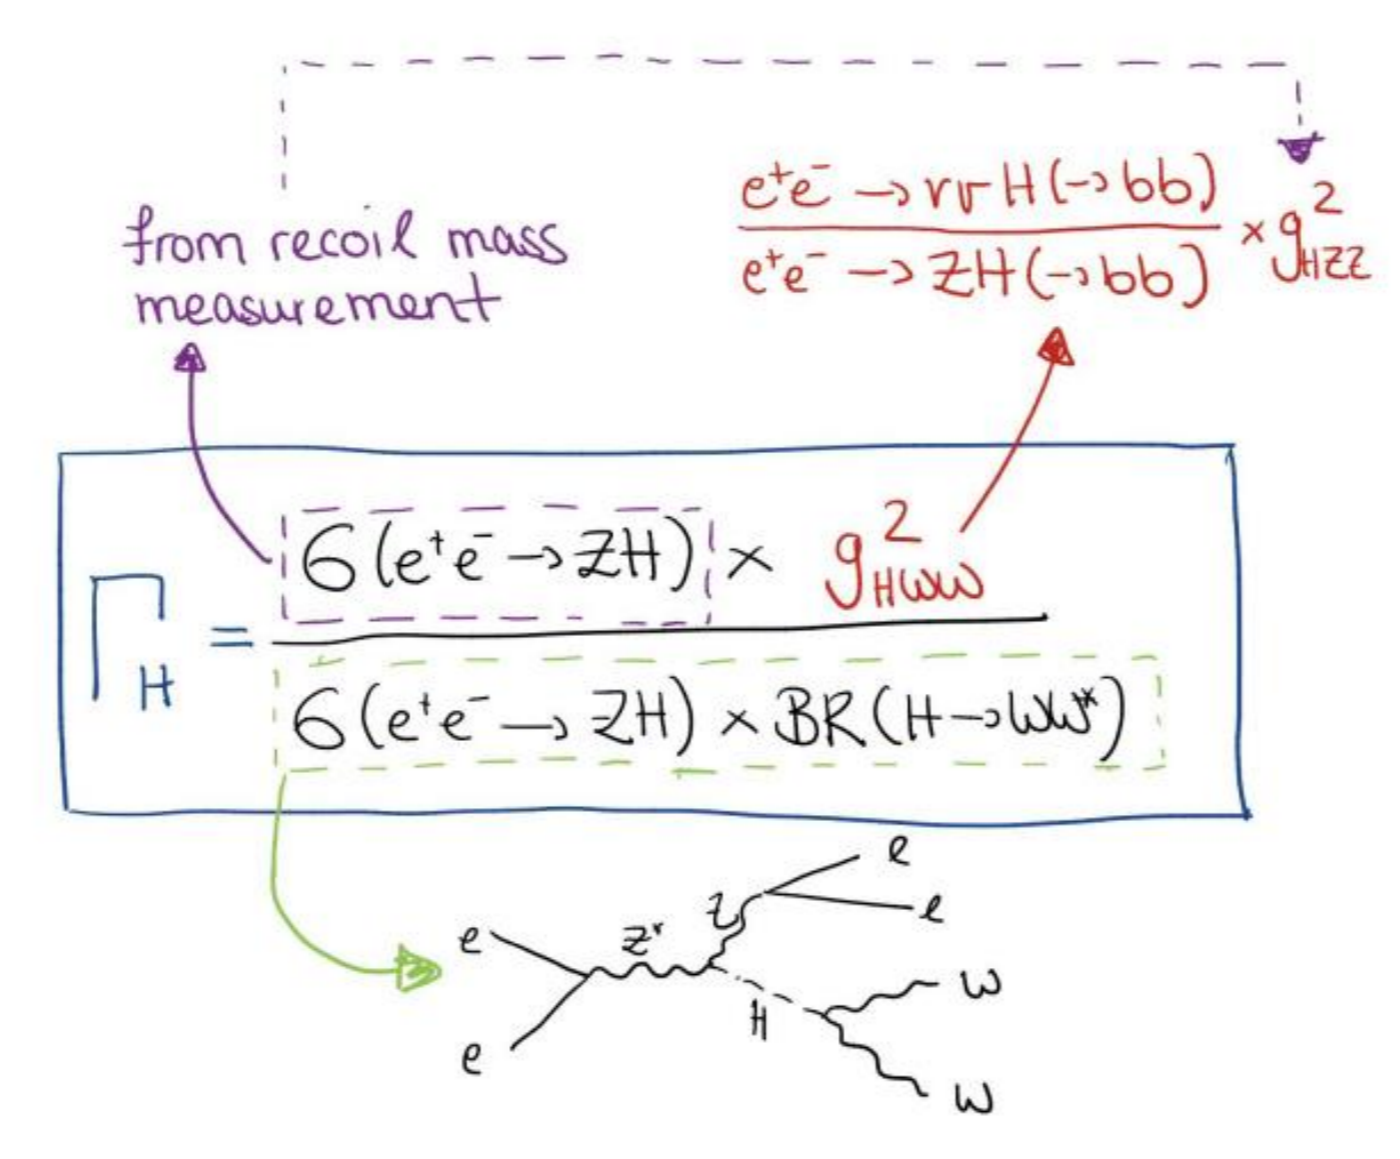 from recoil mass
measurement
e⁺e⁻ → νν H (→ bb)
e⁺e⁻ → ZH (→ bb)
× g²HZZ
Γ_H =
σ (e⁺e⁻ → ZH) × g²HWW
σ (e⁺e⁻ → ZH) × BR (H → WW*)
e
e
Z*
Z
H
l
l
W
W